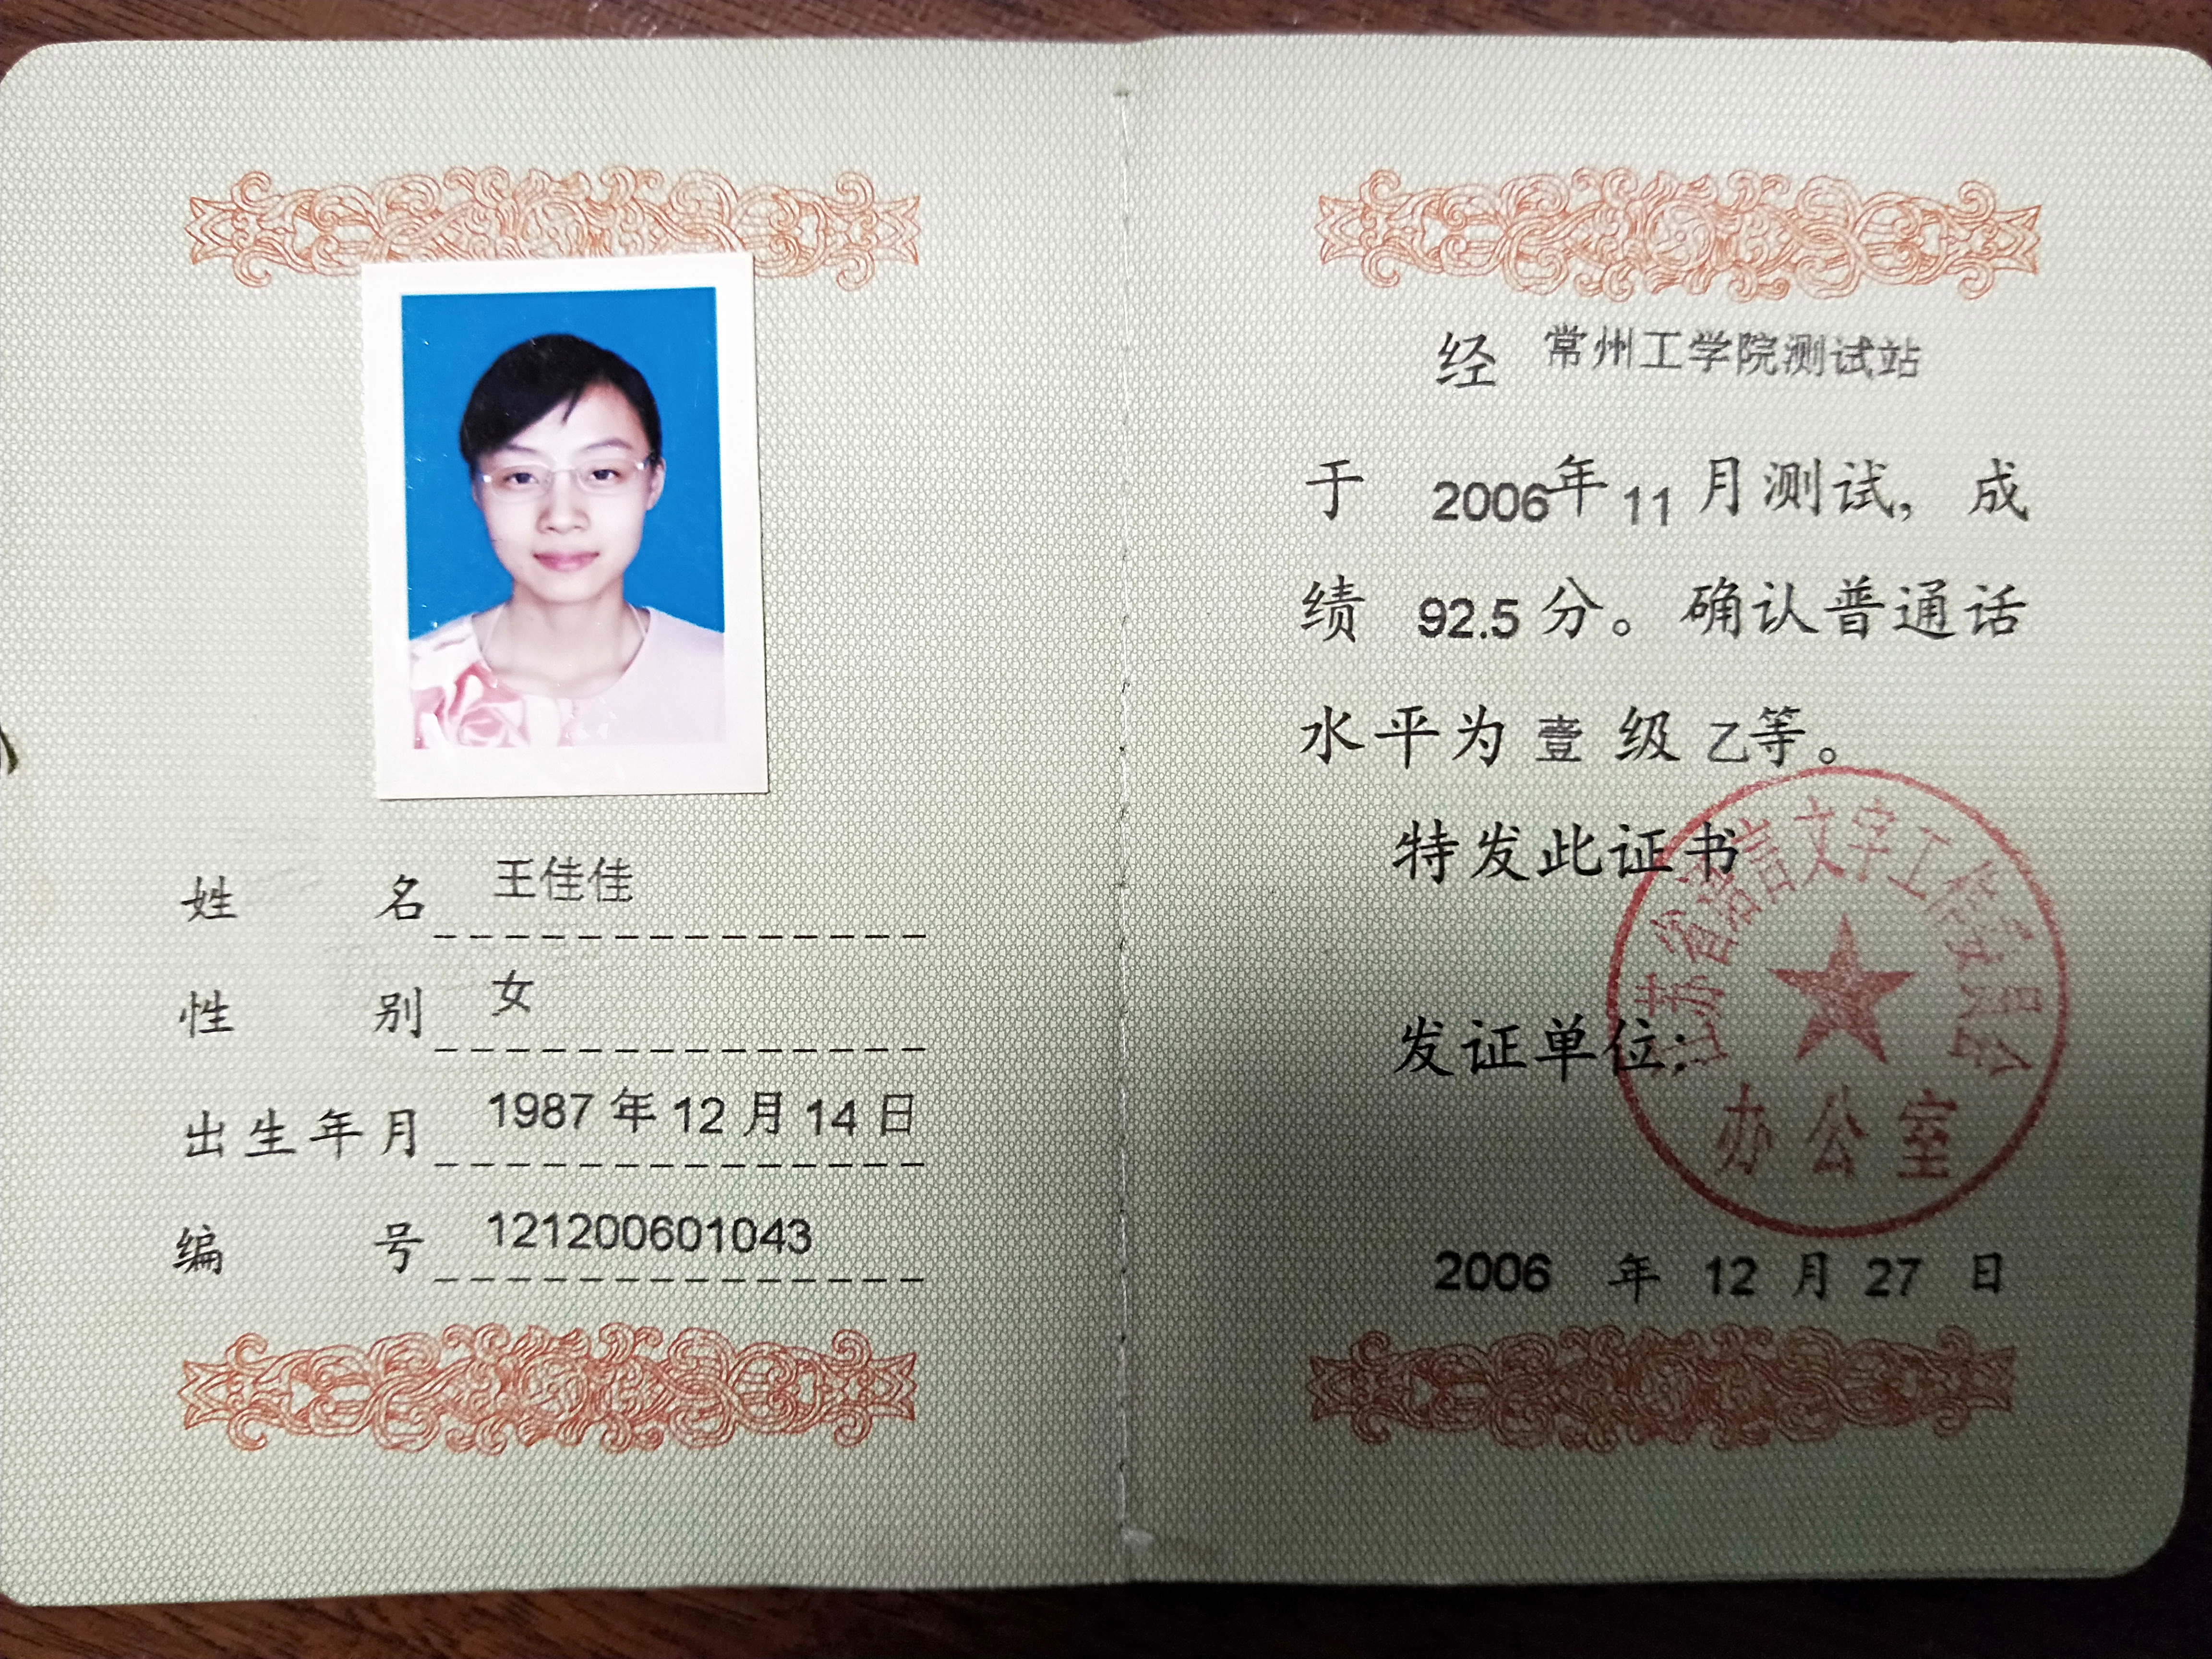 姓名 王佳佳
性别 女
出生年月 1987年12月14日
编号 121200601043
经 常州工学院测试站
于 2006年11月测试，成
绩 92.5分。确认普通话
水平为 壹 级 乙等。
特发此证书
发证单位：
江苏省语言文字工作委员会
办公室
2006 年 12 月 27 日